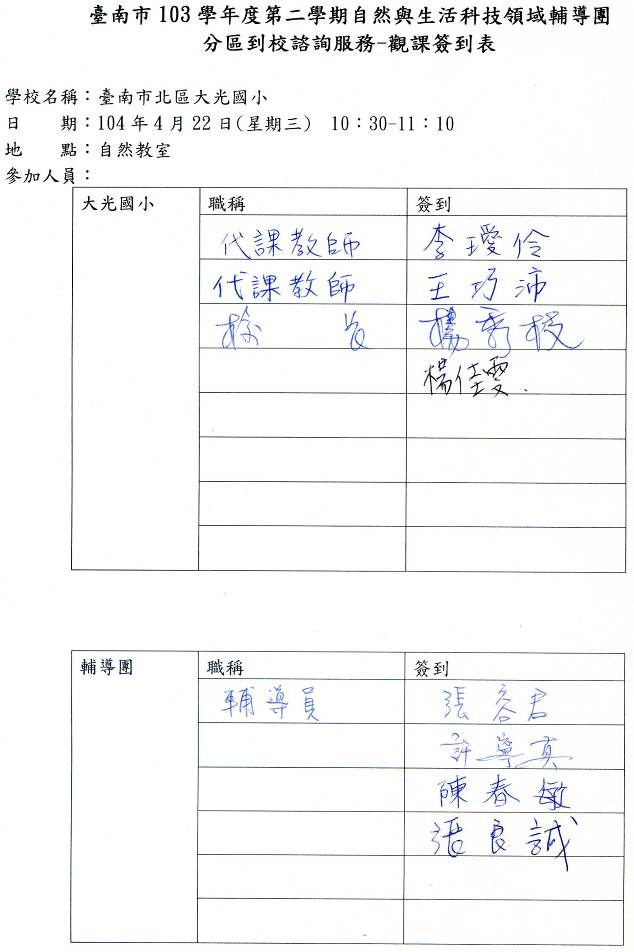 臺南市 103 學年度第二學期自然與生活科技領域輔導團
分區到校諮詢服務-觀課簽到表
學校名稱：臺南市北區大光國小
日　　期：104 年 4 月 22 日(星期三)　10：30-11：10
地　　點：自然教室
參加人員：
大光國小　職稱　簽到
代課教師　李璦伶
代課教師　王巧沛
校長　楊秀枝
楊佳雯.
輔導團　職稱　簽到
輔導員　張容君
許寧真
陳春敏
張良誠